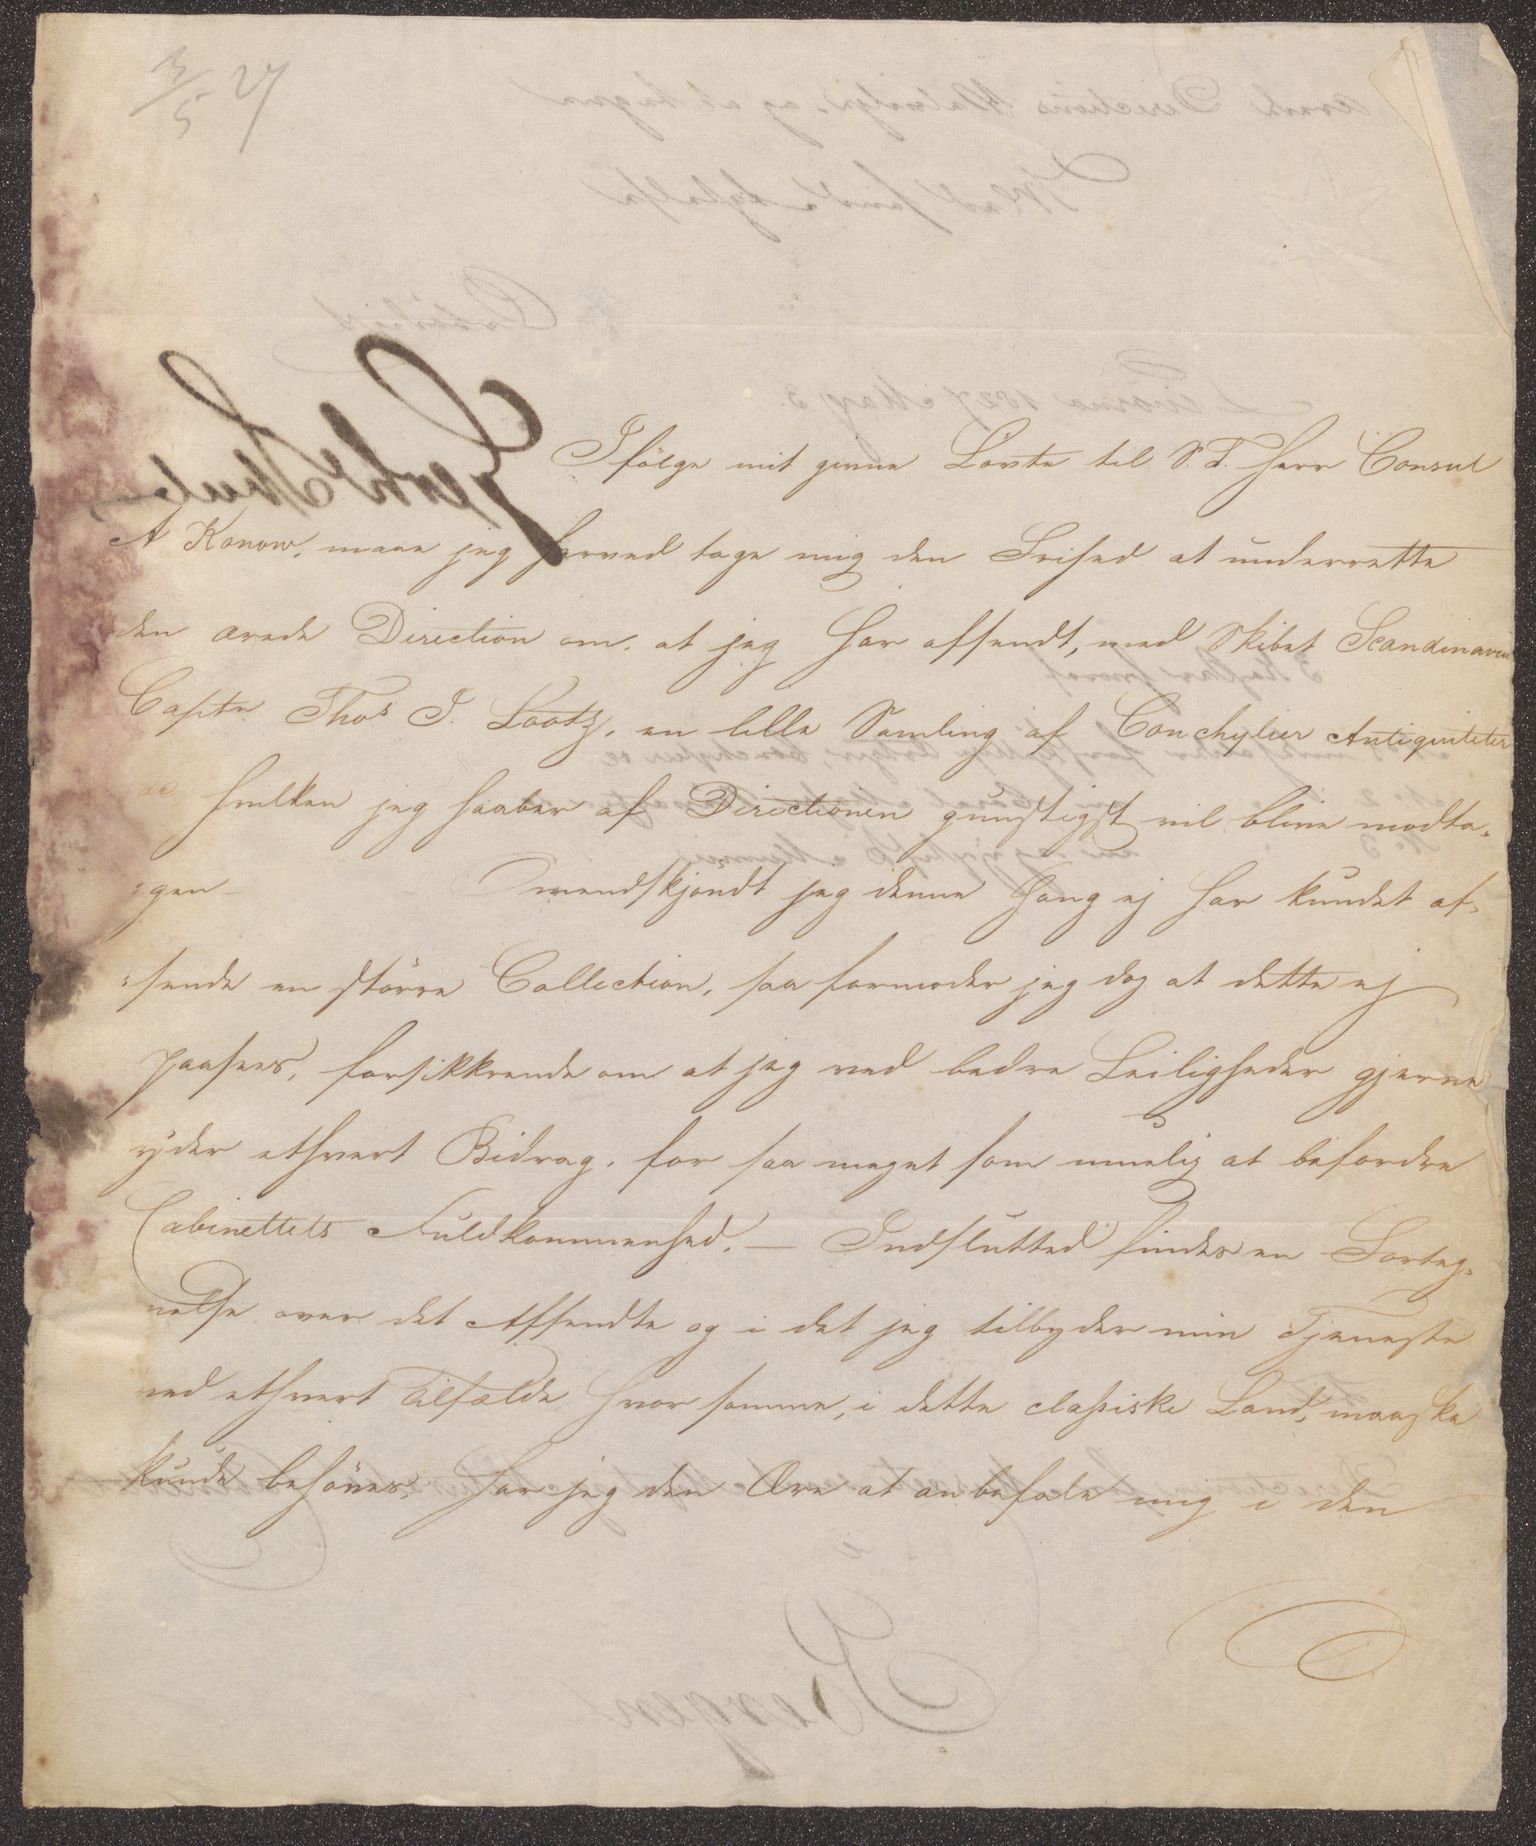 3/5 27
Ifölge mit givne Lövte til S. T. Herr Consul
A Konow, maae jeg herved tage mig den Frihed at underrette
den ærede Direction om, at jeg har afsendt, med Skibet Scandinavien
Captn Thos J. Lootz, en lille Samling af Conchylier Antiquiteter
ec hvilken jeg haaber af Directionen gunstigst vil blive modta-
-gen — Omendskjöndt jeg denne Gang ej har kundet af-
-sende en större Collection, saa formoder jeg dog at dette ej
paasees, forsikkrende om at jeg ved bedre Leiligheder gjerne
yder ethvert Bidrag, for saa meget som muelig at befordre
Cabinettets Fuldkommenhed. — Indslutted findes en Forteg-
nelse over det Afsendte og i det jeg tilbyder min Tjeneste
ved ethvert Tilfælde hvor samme, i dette classiske Land, maaske
kunde behöves, har jeg den Ære at anbefale mig i den